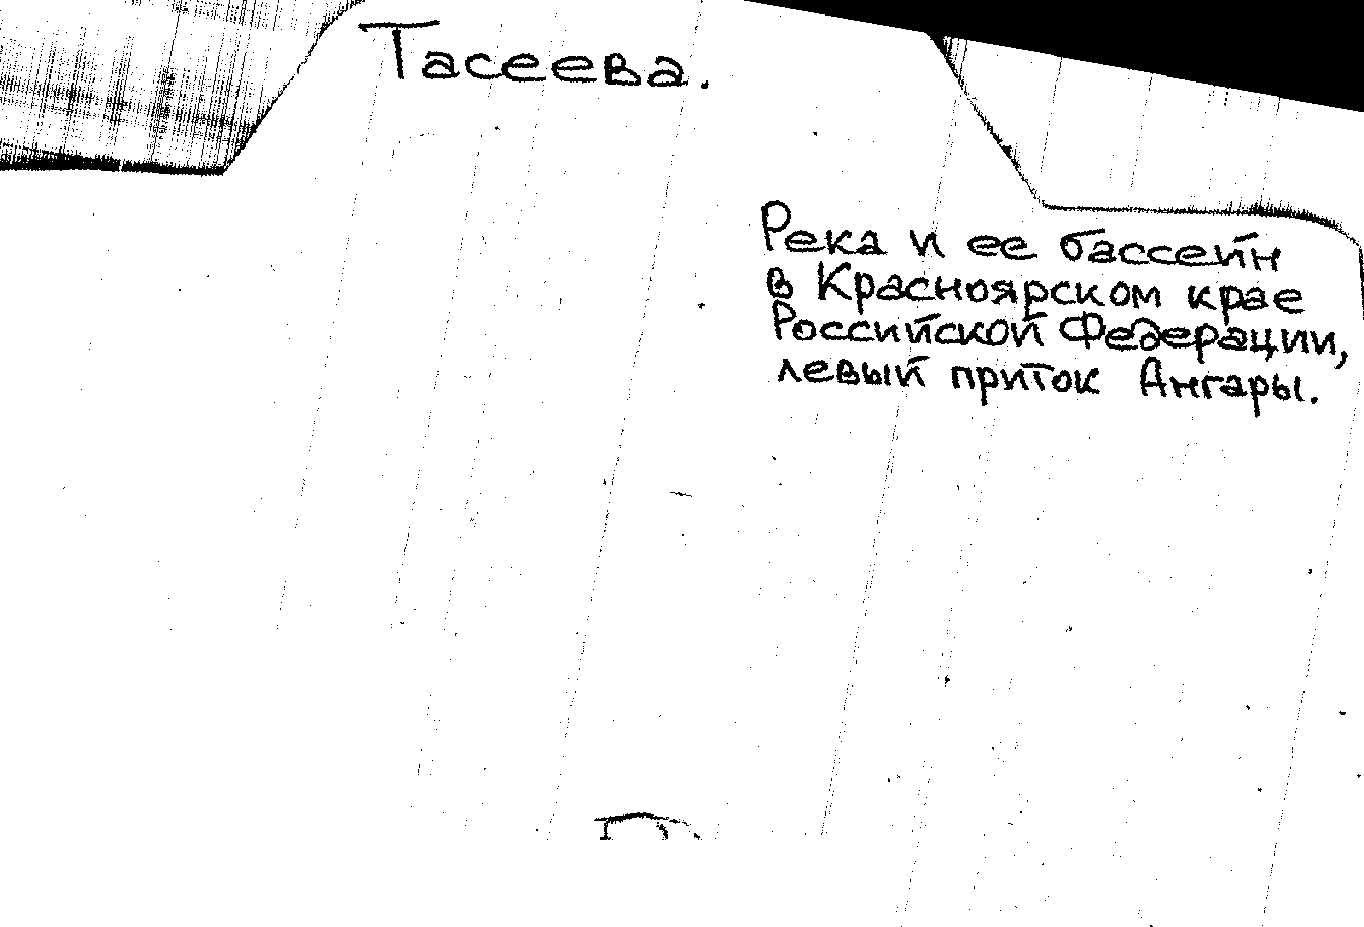 Тасеева.
Река и ее бассейн
в Красноярском крае
Российской Федерации,
левый приток Ангары.